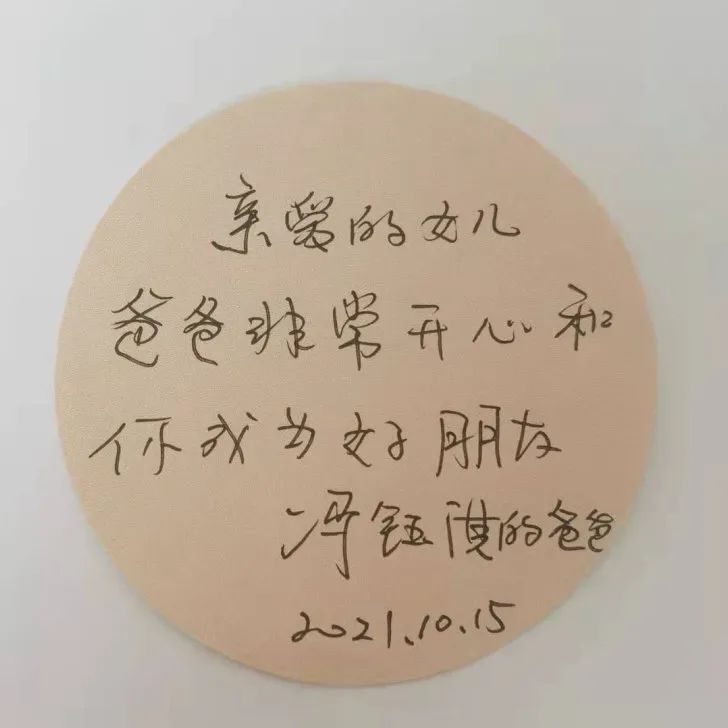 亲爱的女儿
爸爸非常开心和
你成为好朋友
冯钰淇的爸爸
2021.10.15